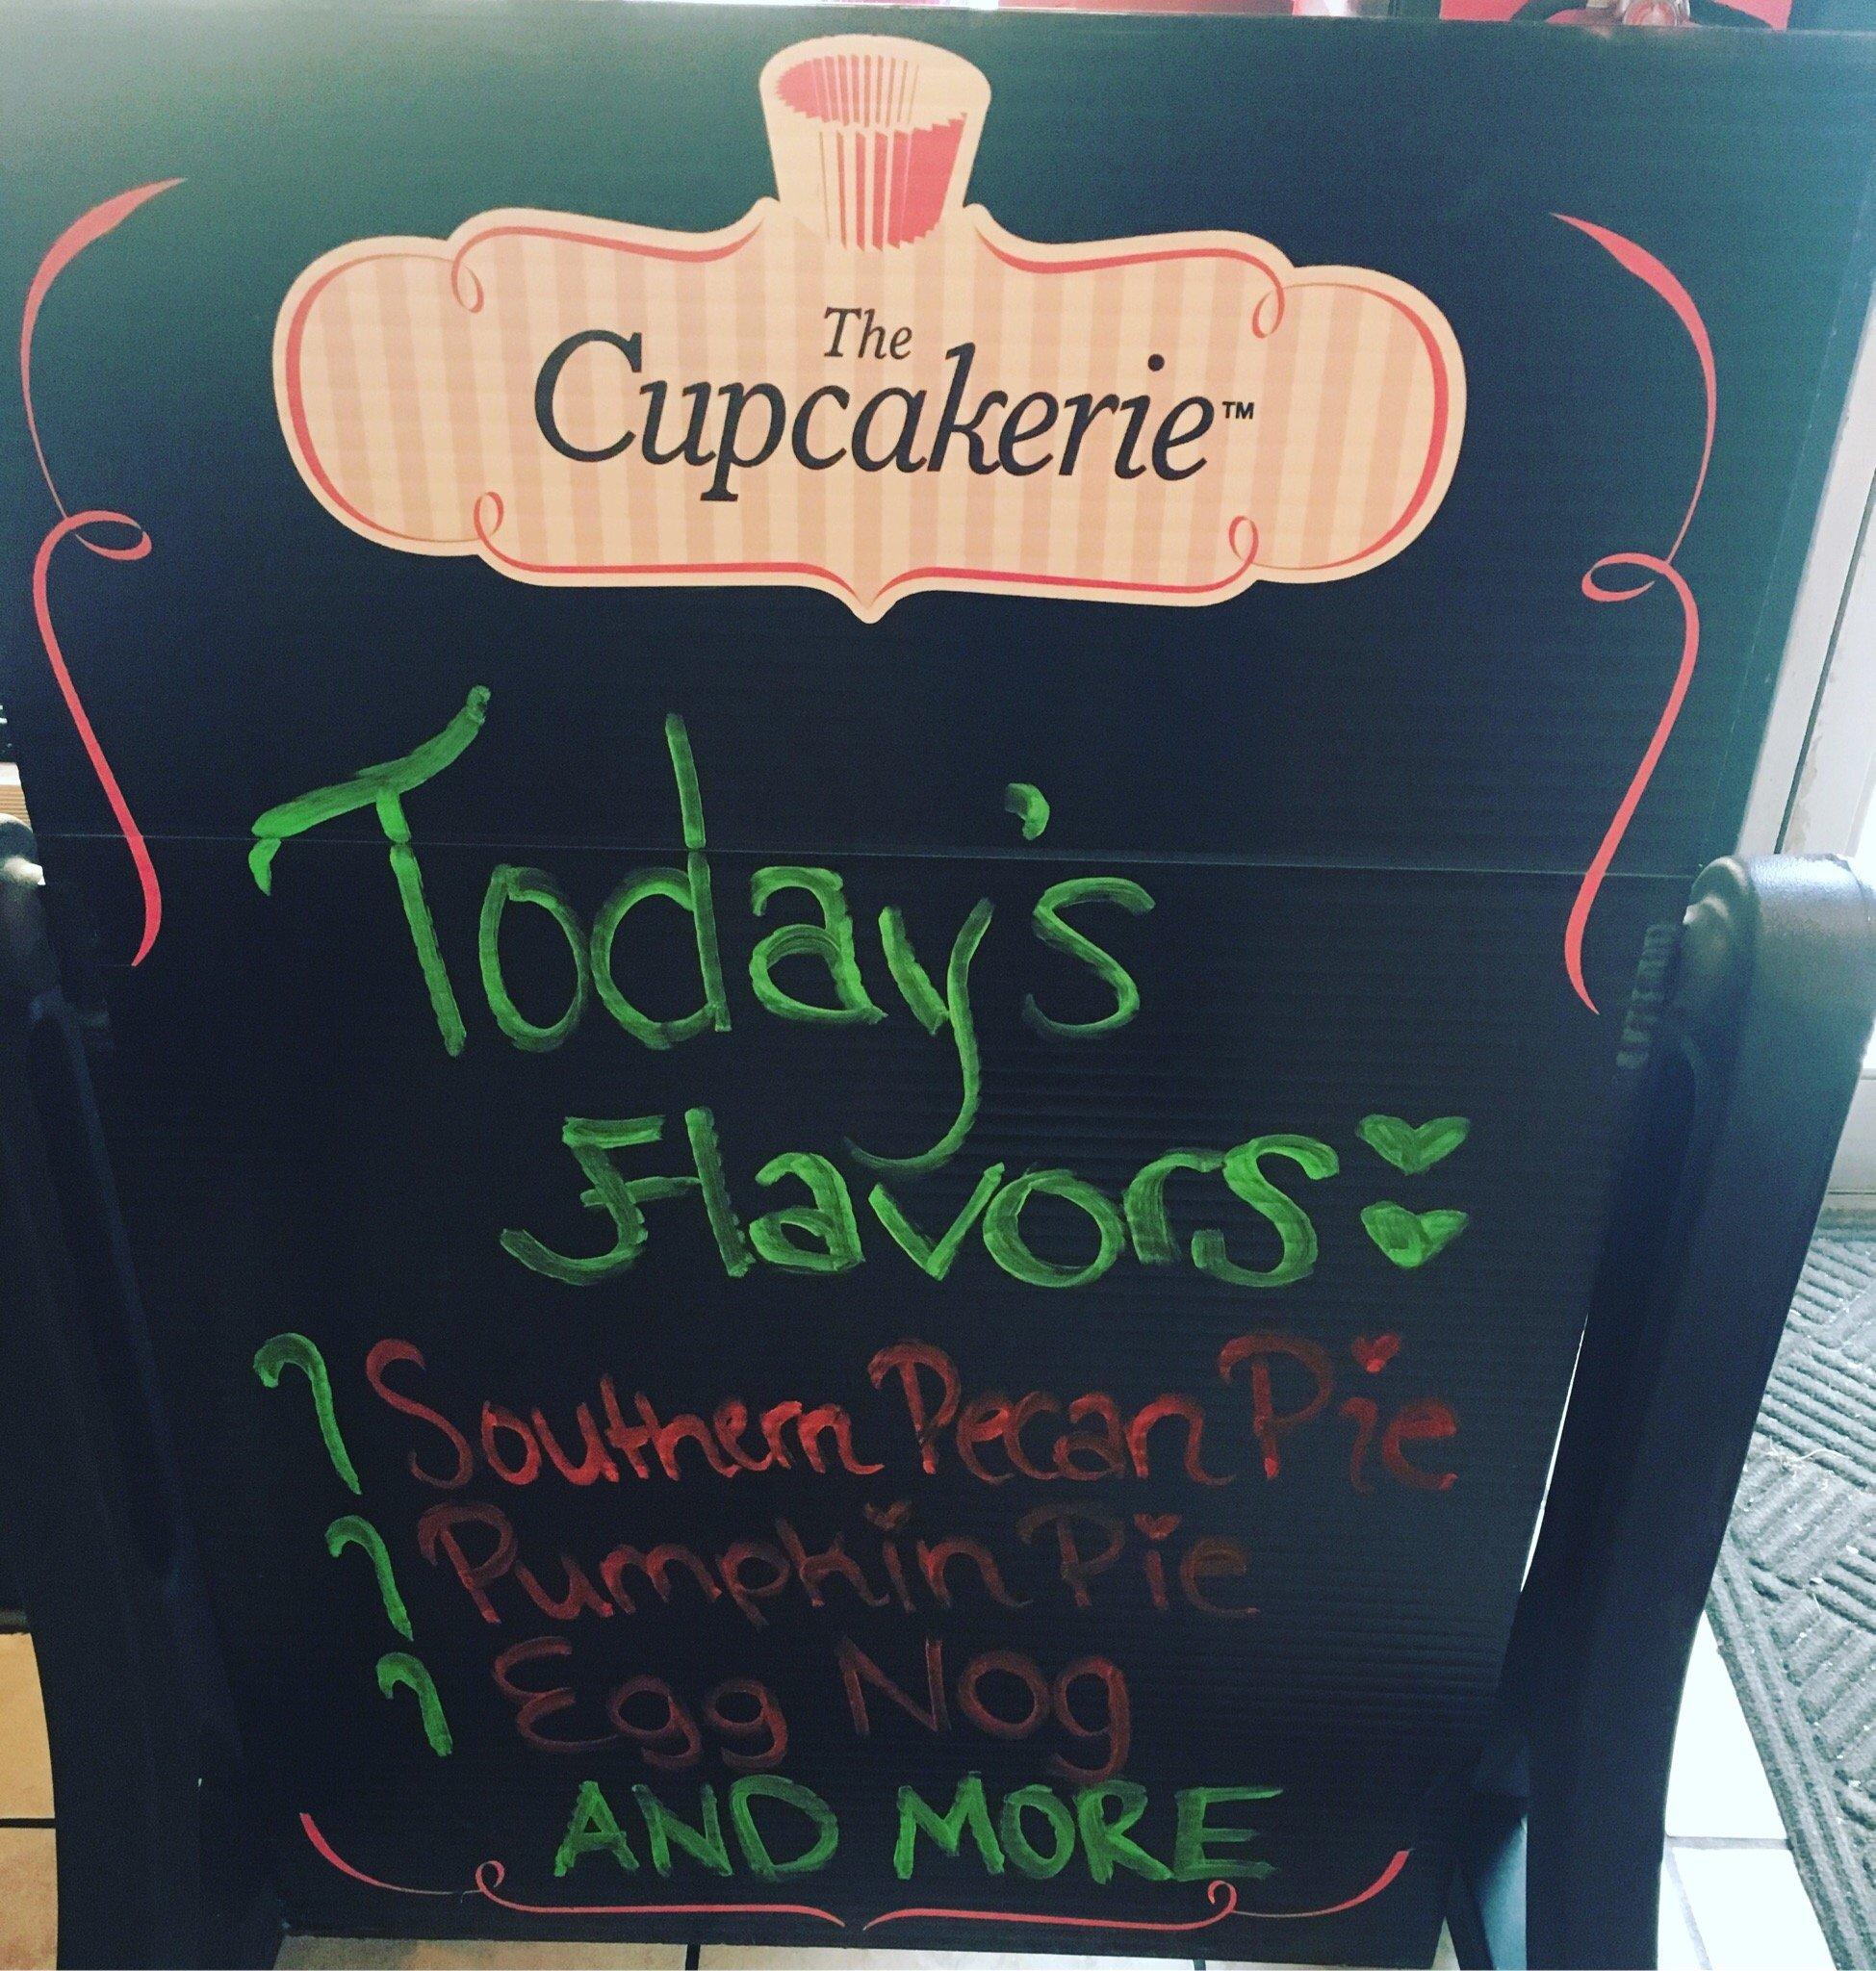 The
Cupcakerie™
Today's
Flavors:
Southern Pecan Pie
Pumpkin Pie
Egg Nog
AND MORE